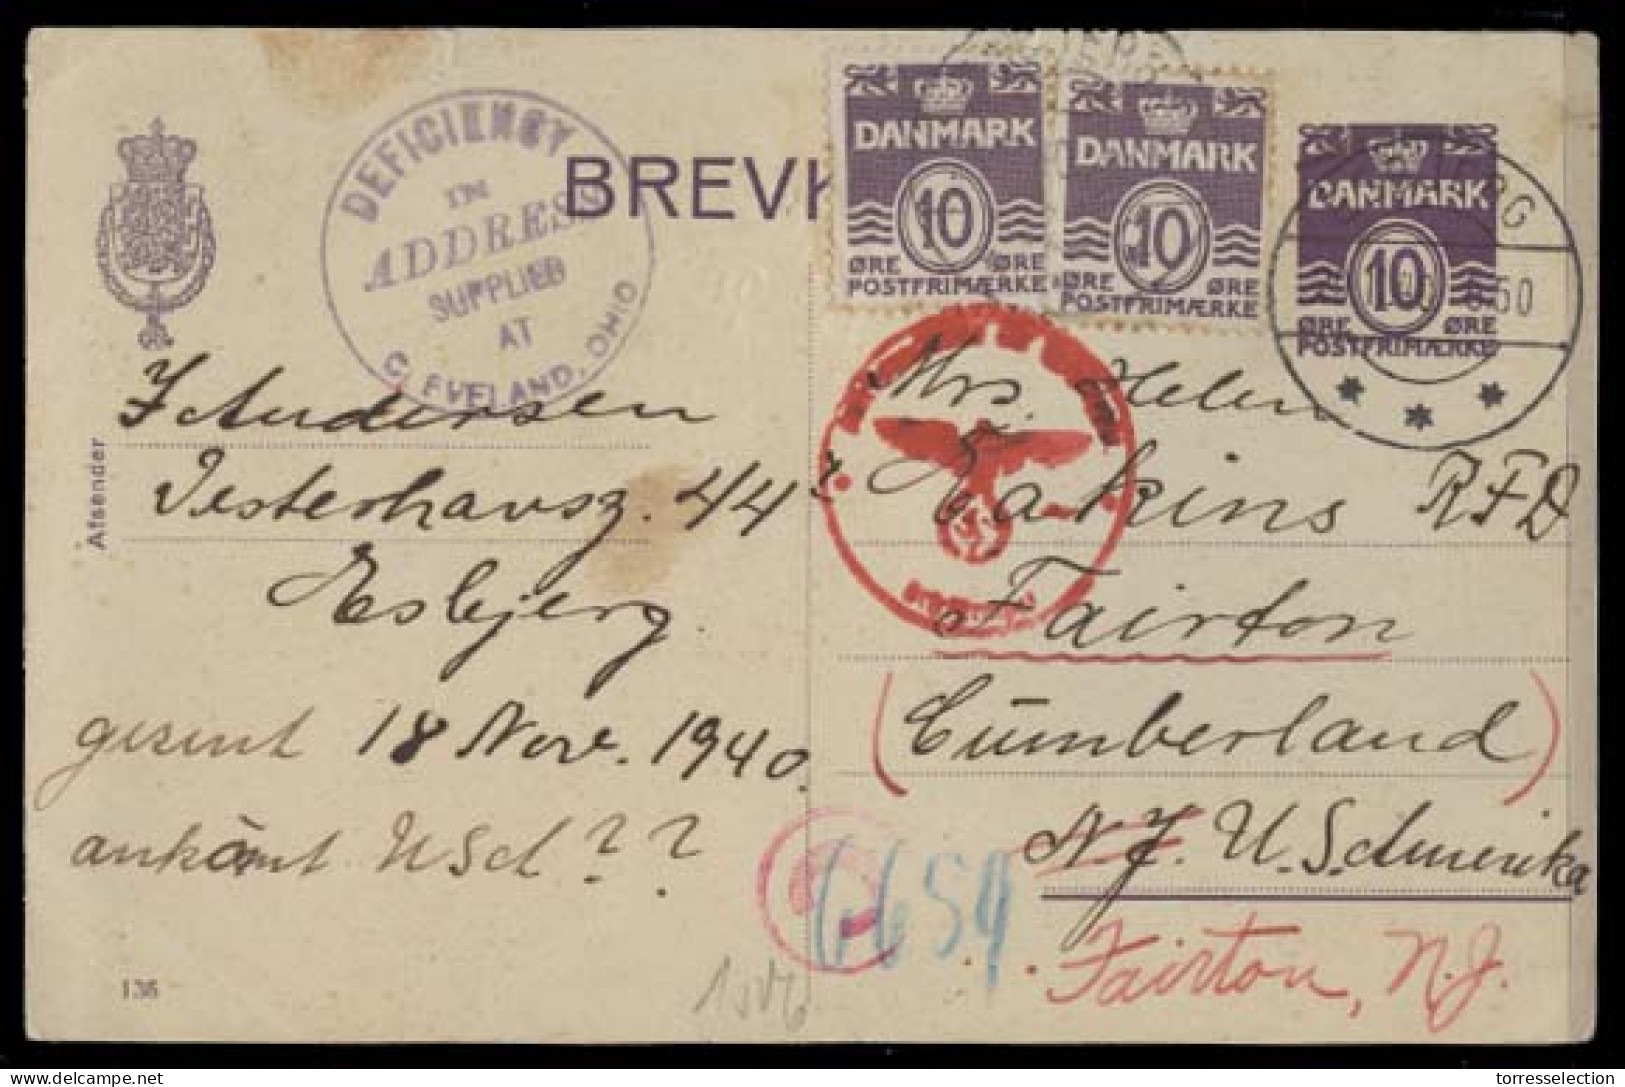 DEFICIENCY
IN
ADDRESS
SUPPLIED
AT
CLEVELAND, OHIO
BREVK
DANMARK
10
ØRE ØRE
POSTFRIMÆRKE
DANMARK
10
ØRE ØRE
POSTFRIMÆRKE
DANMARK
10
ØRE ØRE
POSTFRIMÆRKE
50
Afsender
J Andersen
Vesterhavsg. 44
Esbjerg.
gesent 18 Nov. 1940.
ankamt USA ? ?
Mrs. Helen
Eakins RFD
Fairton
(Cumberland)
N J. U. S. Amerika
Fairton, N.J.
6654
136
torresselection